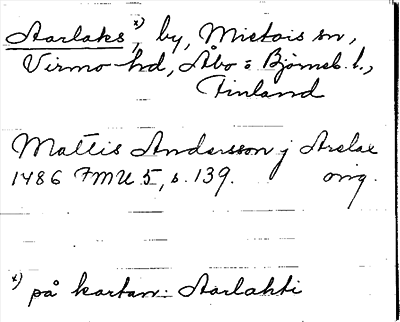 Aarlaks x), by, Mietois sn,
Virmo hd, Åbo o Björneb. l.,
Finland
Mattis Andersson j Arslax
1486 FMU 5, s. 139. orig.
x) på kartan: Aarlahti